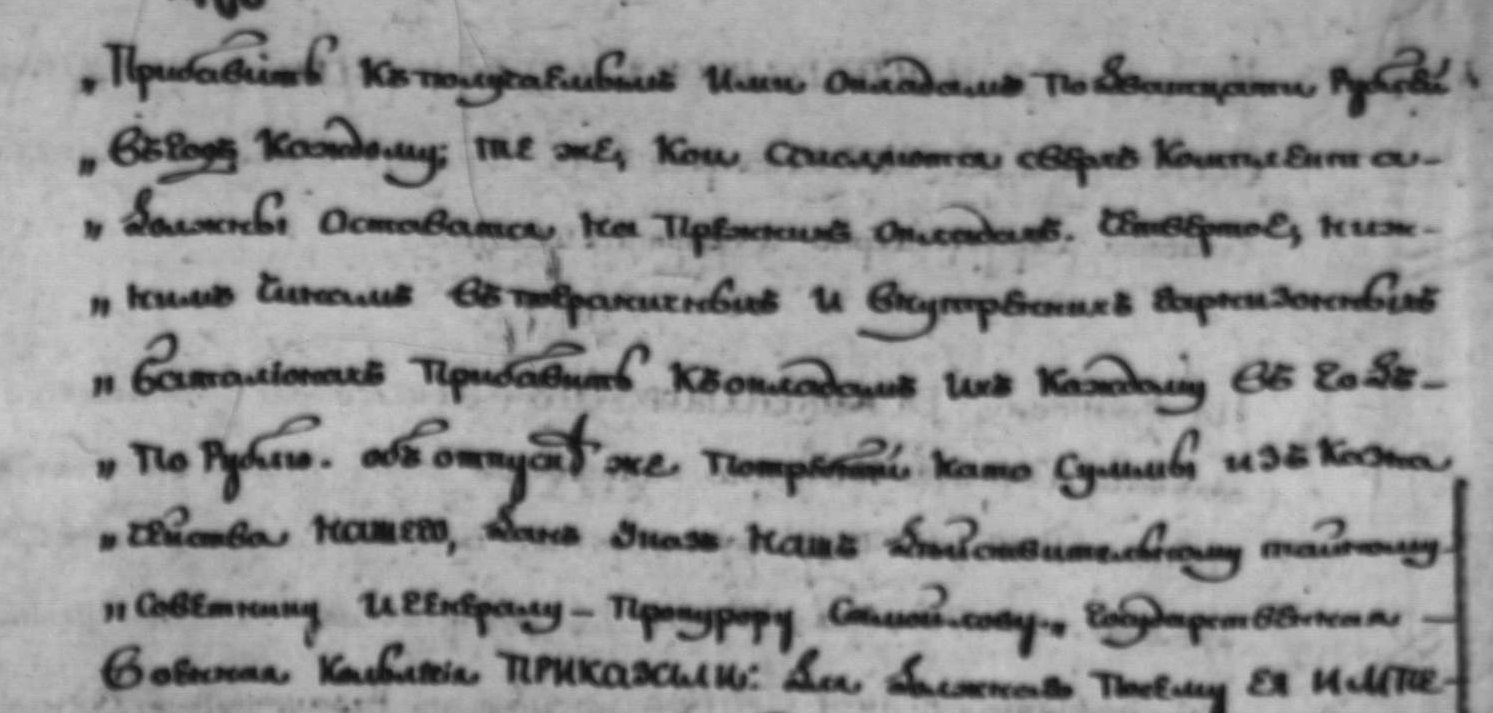 „ Прибавить къ получаемымъ ими окладамъ по дватцати рублей
„ въ годъ каждому; те же, кои счисляются сверхъ комплекта –
„ должны оставатся на прежнихъ окладахъ. Четвертое, ниж-
„ нимъ чинамъ въ пограничныхъ и внутреннихъ гарнизонныхъ
„ баталіонахъ прибавить къ окладамъ ихъ каждому въ годъ –
„ по рублю. объ отпускѣ же потребной на то суммы изъ казна
„ чейства нашего, данъ указъ нашъ дѣйствительному тайному
„ советнику и генералу – прокурору Самойлову„ Государственная –
Военная Коллегія ПРИКАЗАЛИ: для должнаго по сему ЕЯ ИМПЕ-